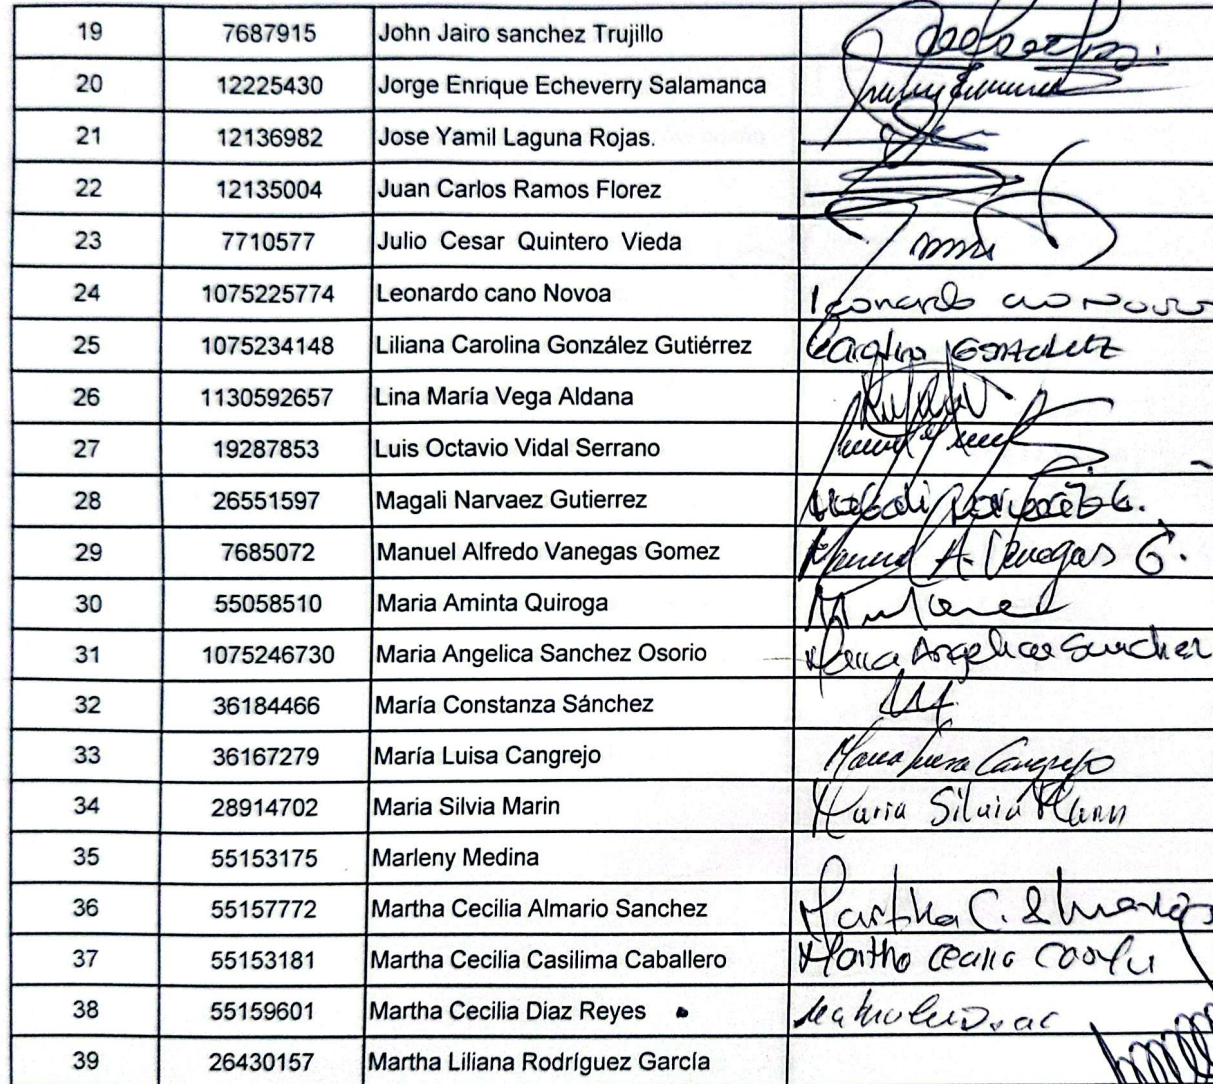 19 7687915 John Jairo sanchez Trujillo
20 12225430 Jorge Enrique Echeverry Salamanca
21 12136982 Jose Yamil Laguna Rojas.
22 12135004 Juan Carlos Ramos Florez
23 7710577 Julio Cesar Quintero Vieda
24 1075225774 Leonardo cano Novoa Leonardo cano Novoa
25 1075234148 Liliana Carolina González Gutiérrez Carolina González
26 1130592657 Lina María Vega Aldana
27 19287853 Luis Octavio Vidal Serrano
28 26551597 Magali Narvaez Gutierrez Magali Narvaez G.
29 7685072 Manuel Alfredo Vanegas Gomez Manuel A. Vanegas G.
30 55058510 Maria Aminta Quiroga
31 1075246730 Maria Angelica Sanchez Osorio Maria Angelica Sanchez
32 36184466 María Constanza Sánchez
33 36167279 María Luisa Cangrejo Maria Luisa Cangrejo
34 28914702 Maria Silvia Marin Maria Silvia Marin
35 55153175 Marleny Medina
36 55157772 Martha Cecilia Almario Sanchez Martha C. Almario
37 55153181 Martha Cecilia Casilima Caballero Martha Cecilia
38 55159601 Martha Cecilia Díaz Reyes
39 26430157 Martha Liliana Rodríguez García